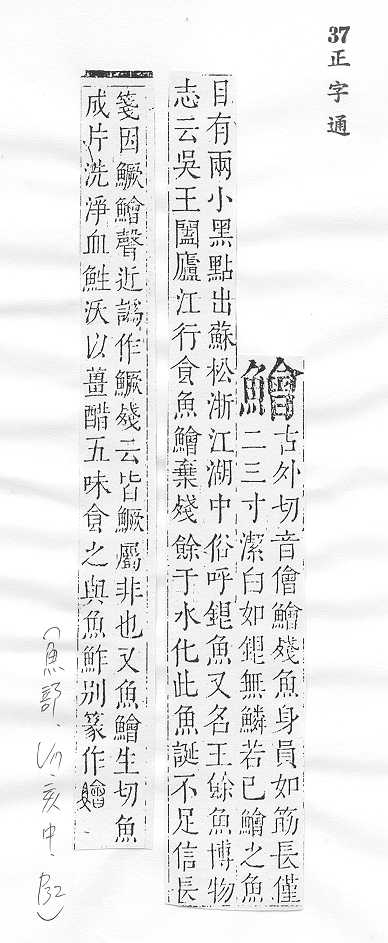 37正字通
鱠
古外切音儈鱠殘魚身員如筯長僅
二三寸潔白如銀無鱗若已鱠之魚
目有兩小黑點出蘇松浙江湖中俗呼銀魚又名王餘魚博物
志云吳王闔廬江行食魚鱠棄殘餘于水化此魚誕不足信長
箋因鱖鱠聲近譌作鱖殘云皆鱖屬非也又魚鱠生切魚
成片洗淨血鮏沃以薑醋五味食之與魚鮓别篆作
(魚部、亥中、P32)